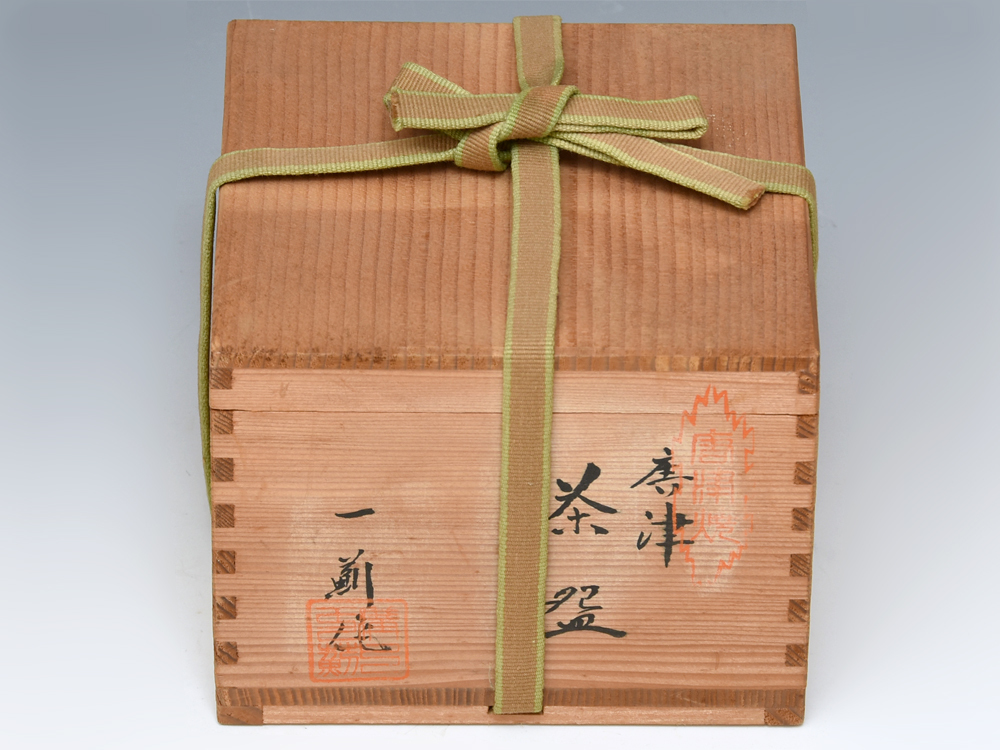 唐津焼
唐津
茶盌
一
作